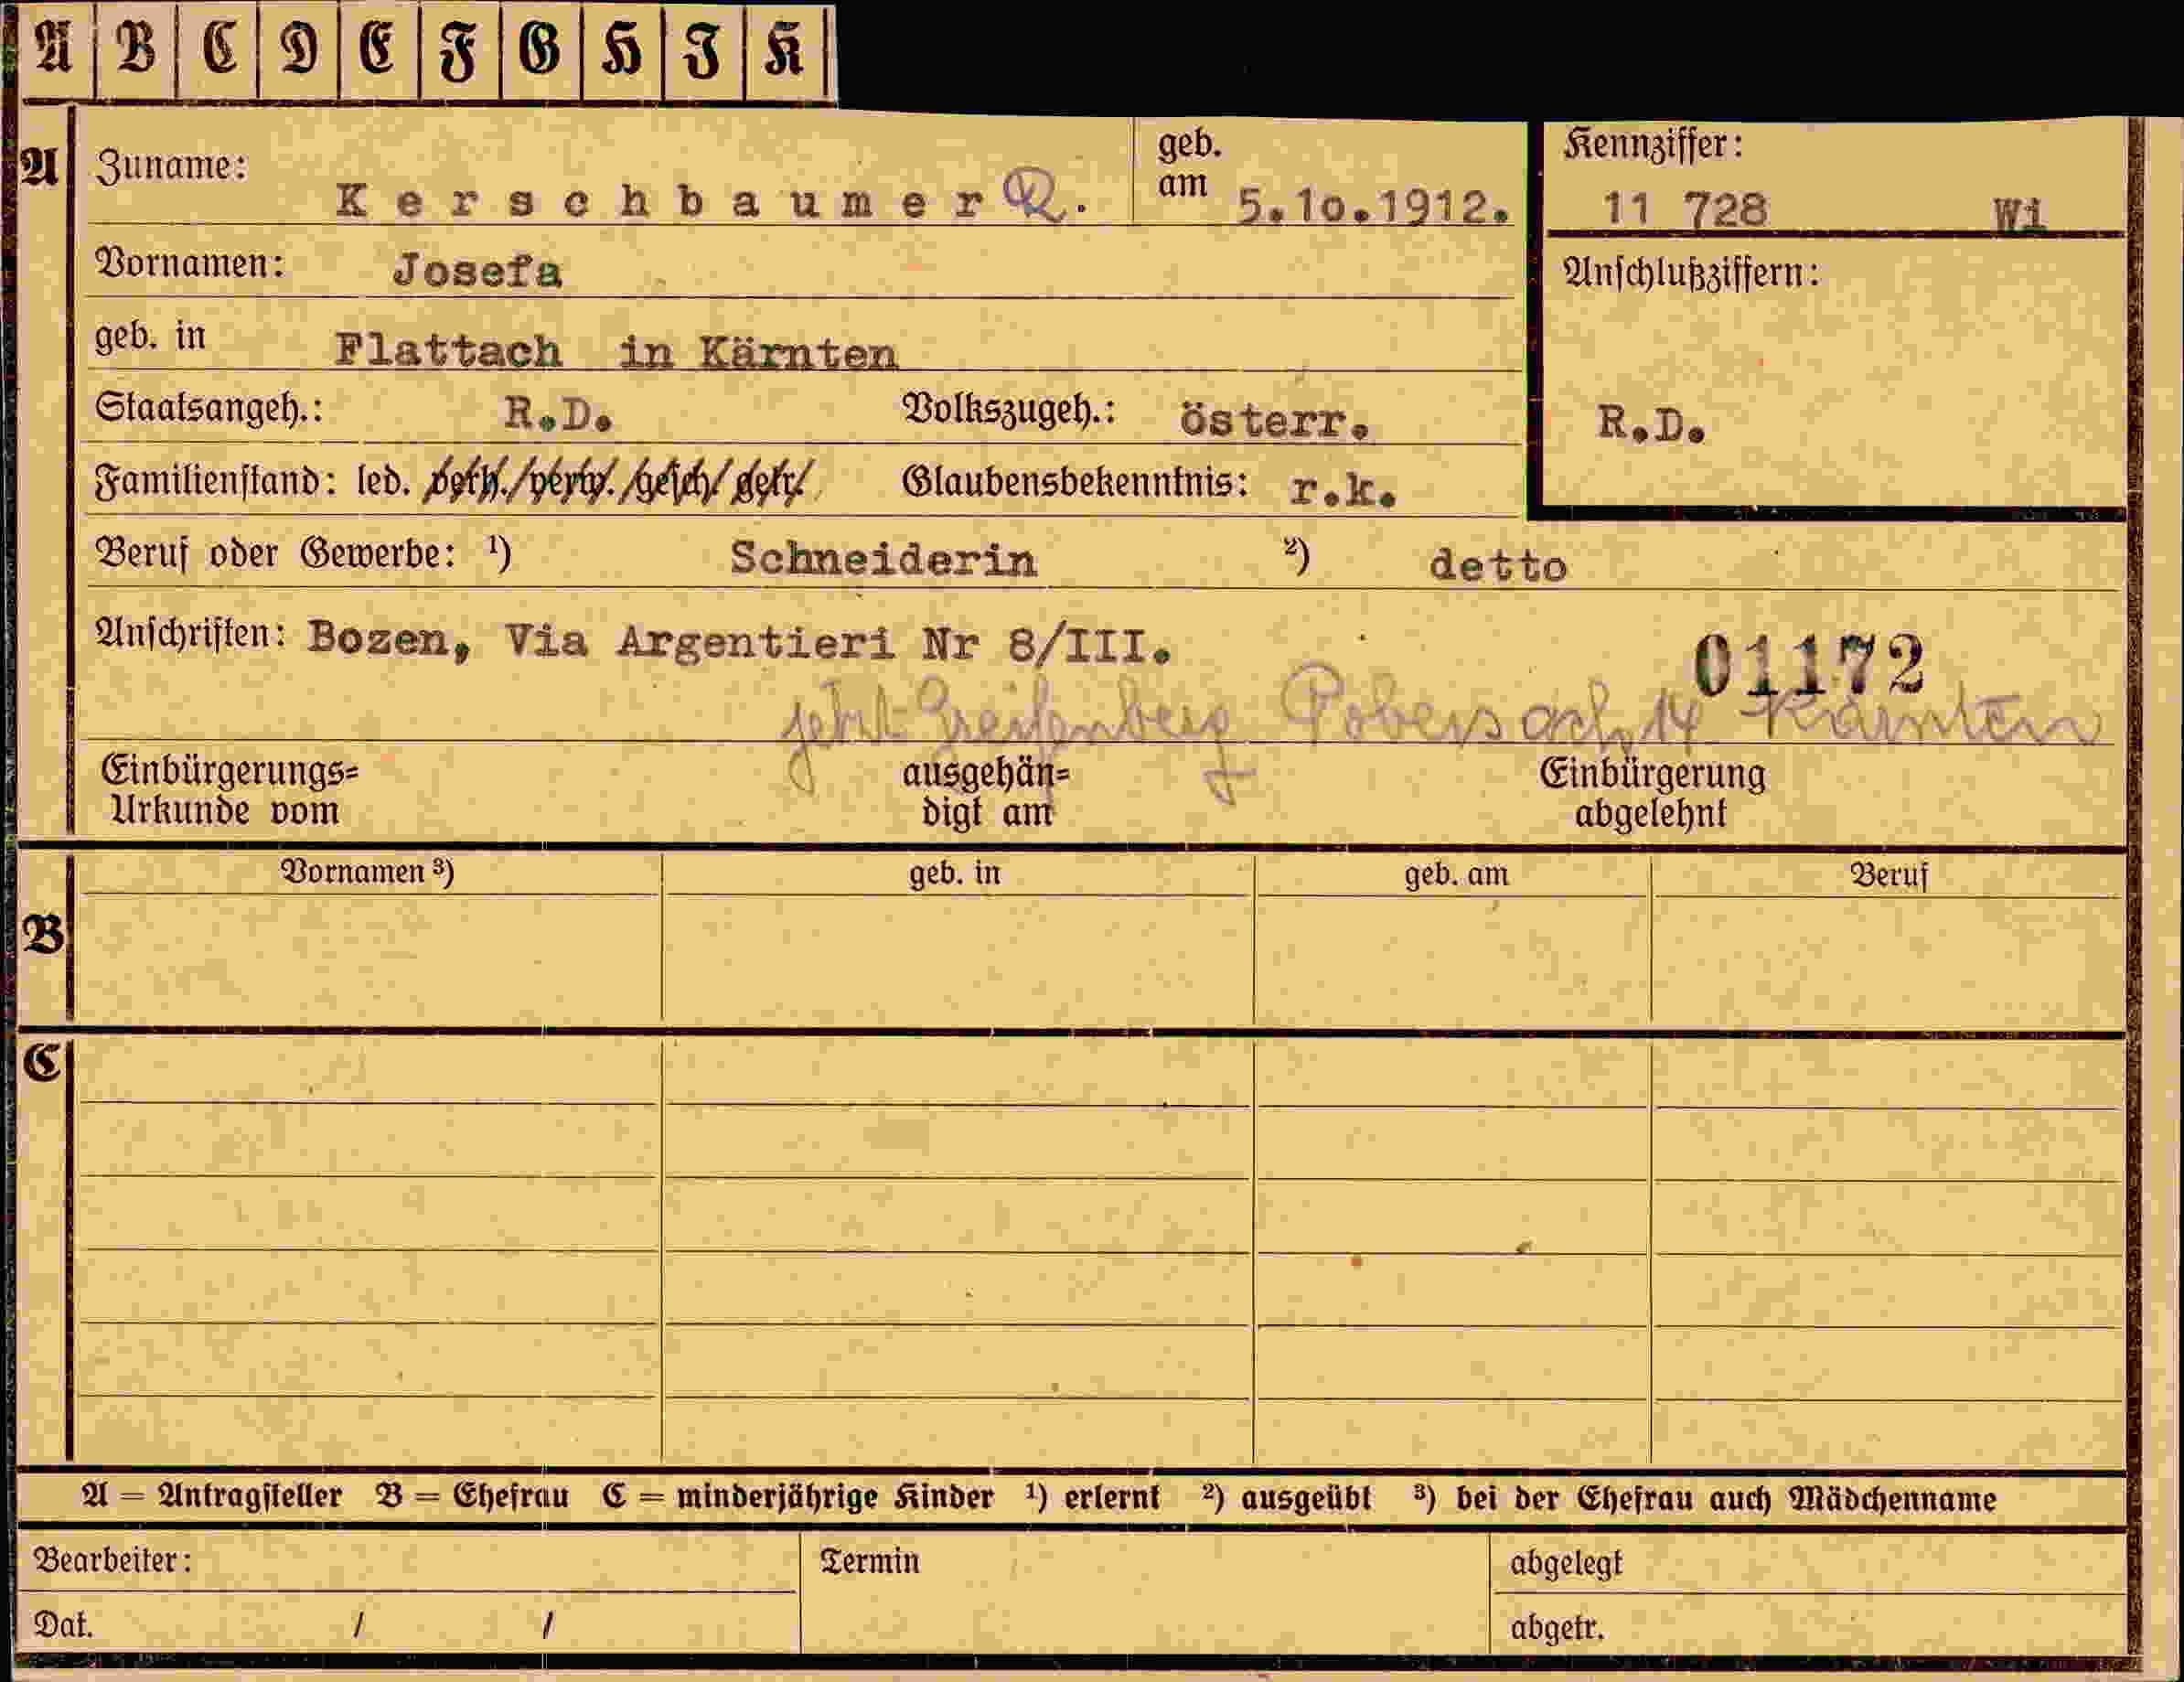 A B C D E F G H I K
A Zuname: Kerschbaumer R. geb. am 5.10.1912. Kennziffer: 11 728 Wi
Vornamen: Josefa Anschlußziffern:
geb. in Flattach in Kärnten
Staatsangeh.: R.D. Volkszugeh.: österr. R.D.
Familienstand: led. verh./verw./gesch/getr. Glaubensbekenntnis: r.k.
Beruf oder Gewerbe: ¹) Schneiderin ²) detto
Anschriften: Bozen, Via Argentieri Nr 8/III. 01172
jetzt Greifenberg 14 Kärnten
Einbürgerungs= ausgehän= Einbürgerung
Urkunde vom digt am abgelehnt
Vornamen ³) geb. in geb. am Beruf
B
C
A = Antragsteller B = Ehefrau C = minderjährige Kinder ¹) erlernt ²) ausgeübt ³) bei der Ehefrau auch Mädchenname
Bearbeiter: Termin abgelegt
Dat. / / abgetr.